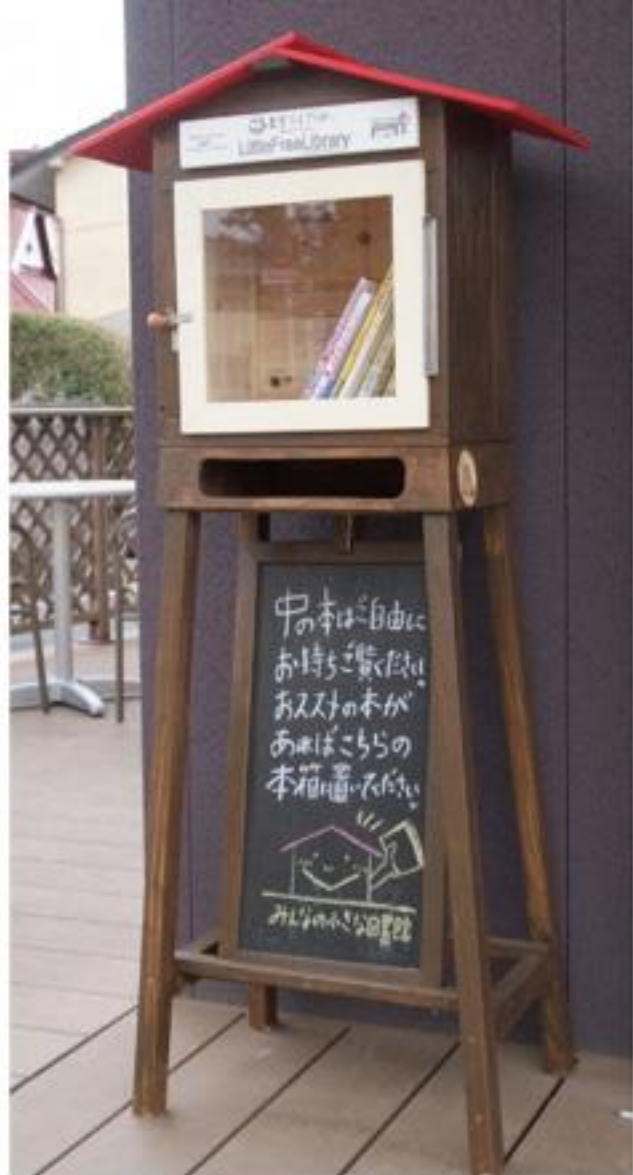 LittleFreeLibrary
中の本はご自由に
お持ちご覧ください。
おススメの本が
あればこちらの
本箱に置いてください。
みんなの小さな図書館